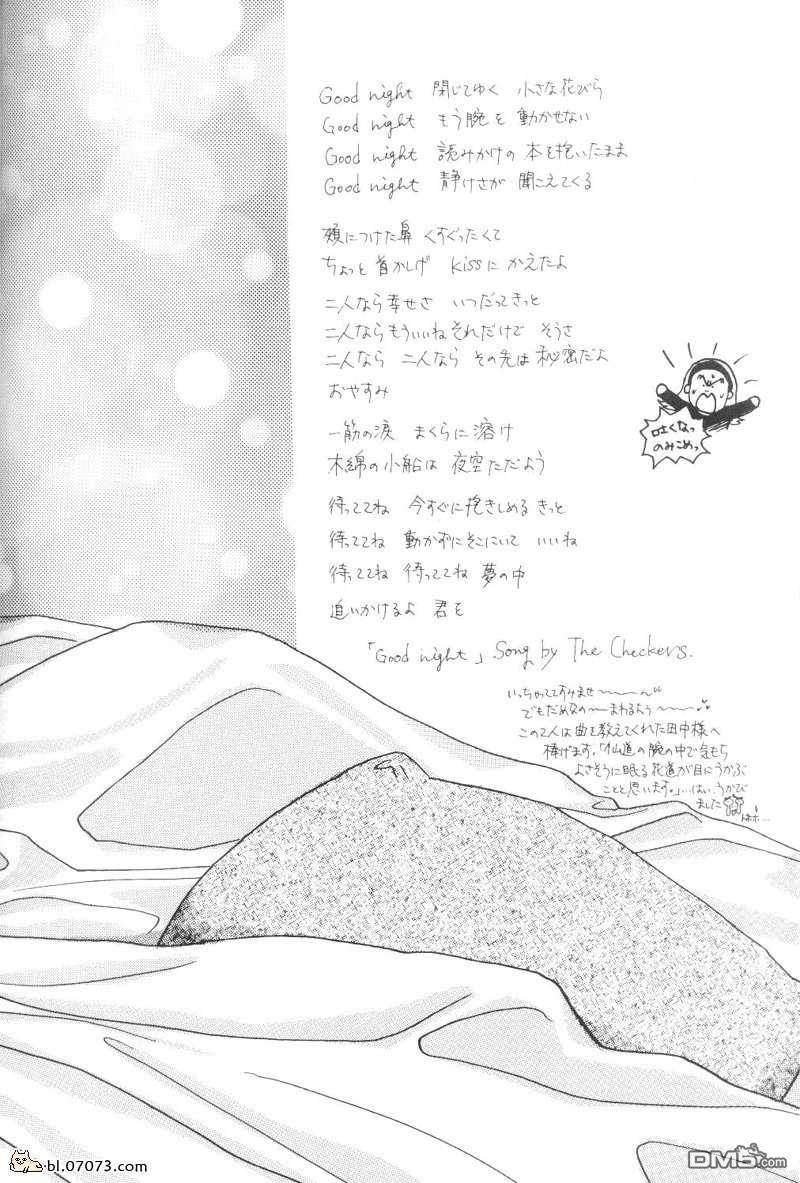 Good night 閉じてゆく 小さな花びら
Good night もう腕を 動かせない
Good night 読みかけの 本を抱いたまま
Good night 静けさが 聞こえてくる
頬につけた鼻 くすぐったくて
ちょっと首かしげ Kissに かえたよ
二人なら幸せさ いつだってきっと
二人ならもういいねそれだけで そうさ
二人なら 二人なら その先は秘密だよ
おやすみ
吐くなっ
のみこめっ
一筋の涙 まくらに溶け
木綿の小船は 夜空ただよう
待っててね 今すぐに抱きしめる きっと
待っててね 動かずにそこにいて いいね
待っててね 待っててね 夢の中
追いかけるよ 君を
「Good night」 Song by The Checkers.
いっちゃっててすみませ〜〜ん
でもだめなの―まわるよう〜〜
この2人は曲を教えてくれた田中様へ
捧げます。「仙道の腕の中で気もち
よさそうに眠る花道が目にうかぶ
ことと思います。」…はい、うかび
ました
bl.07073.com
DM5.com